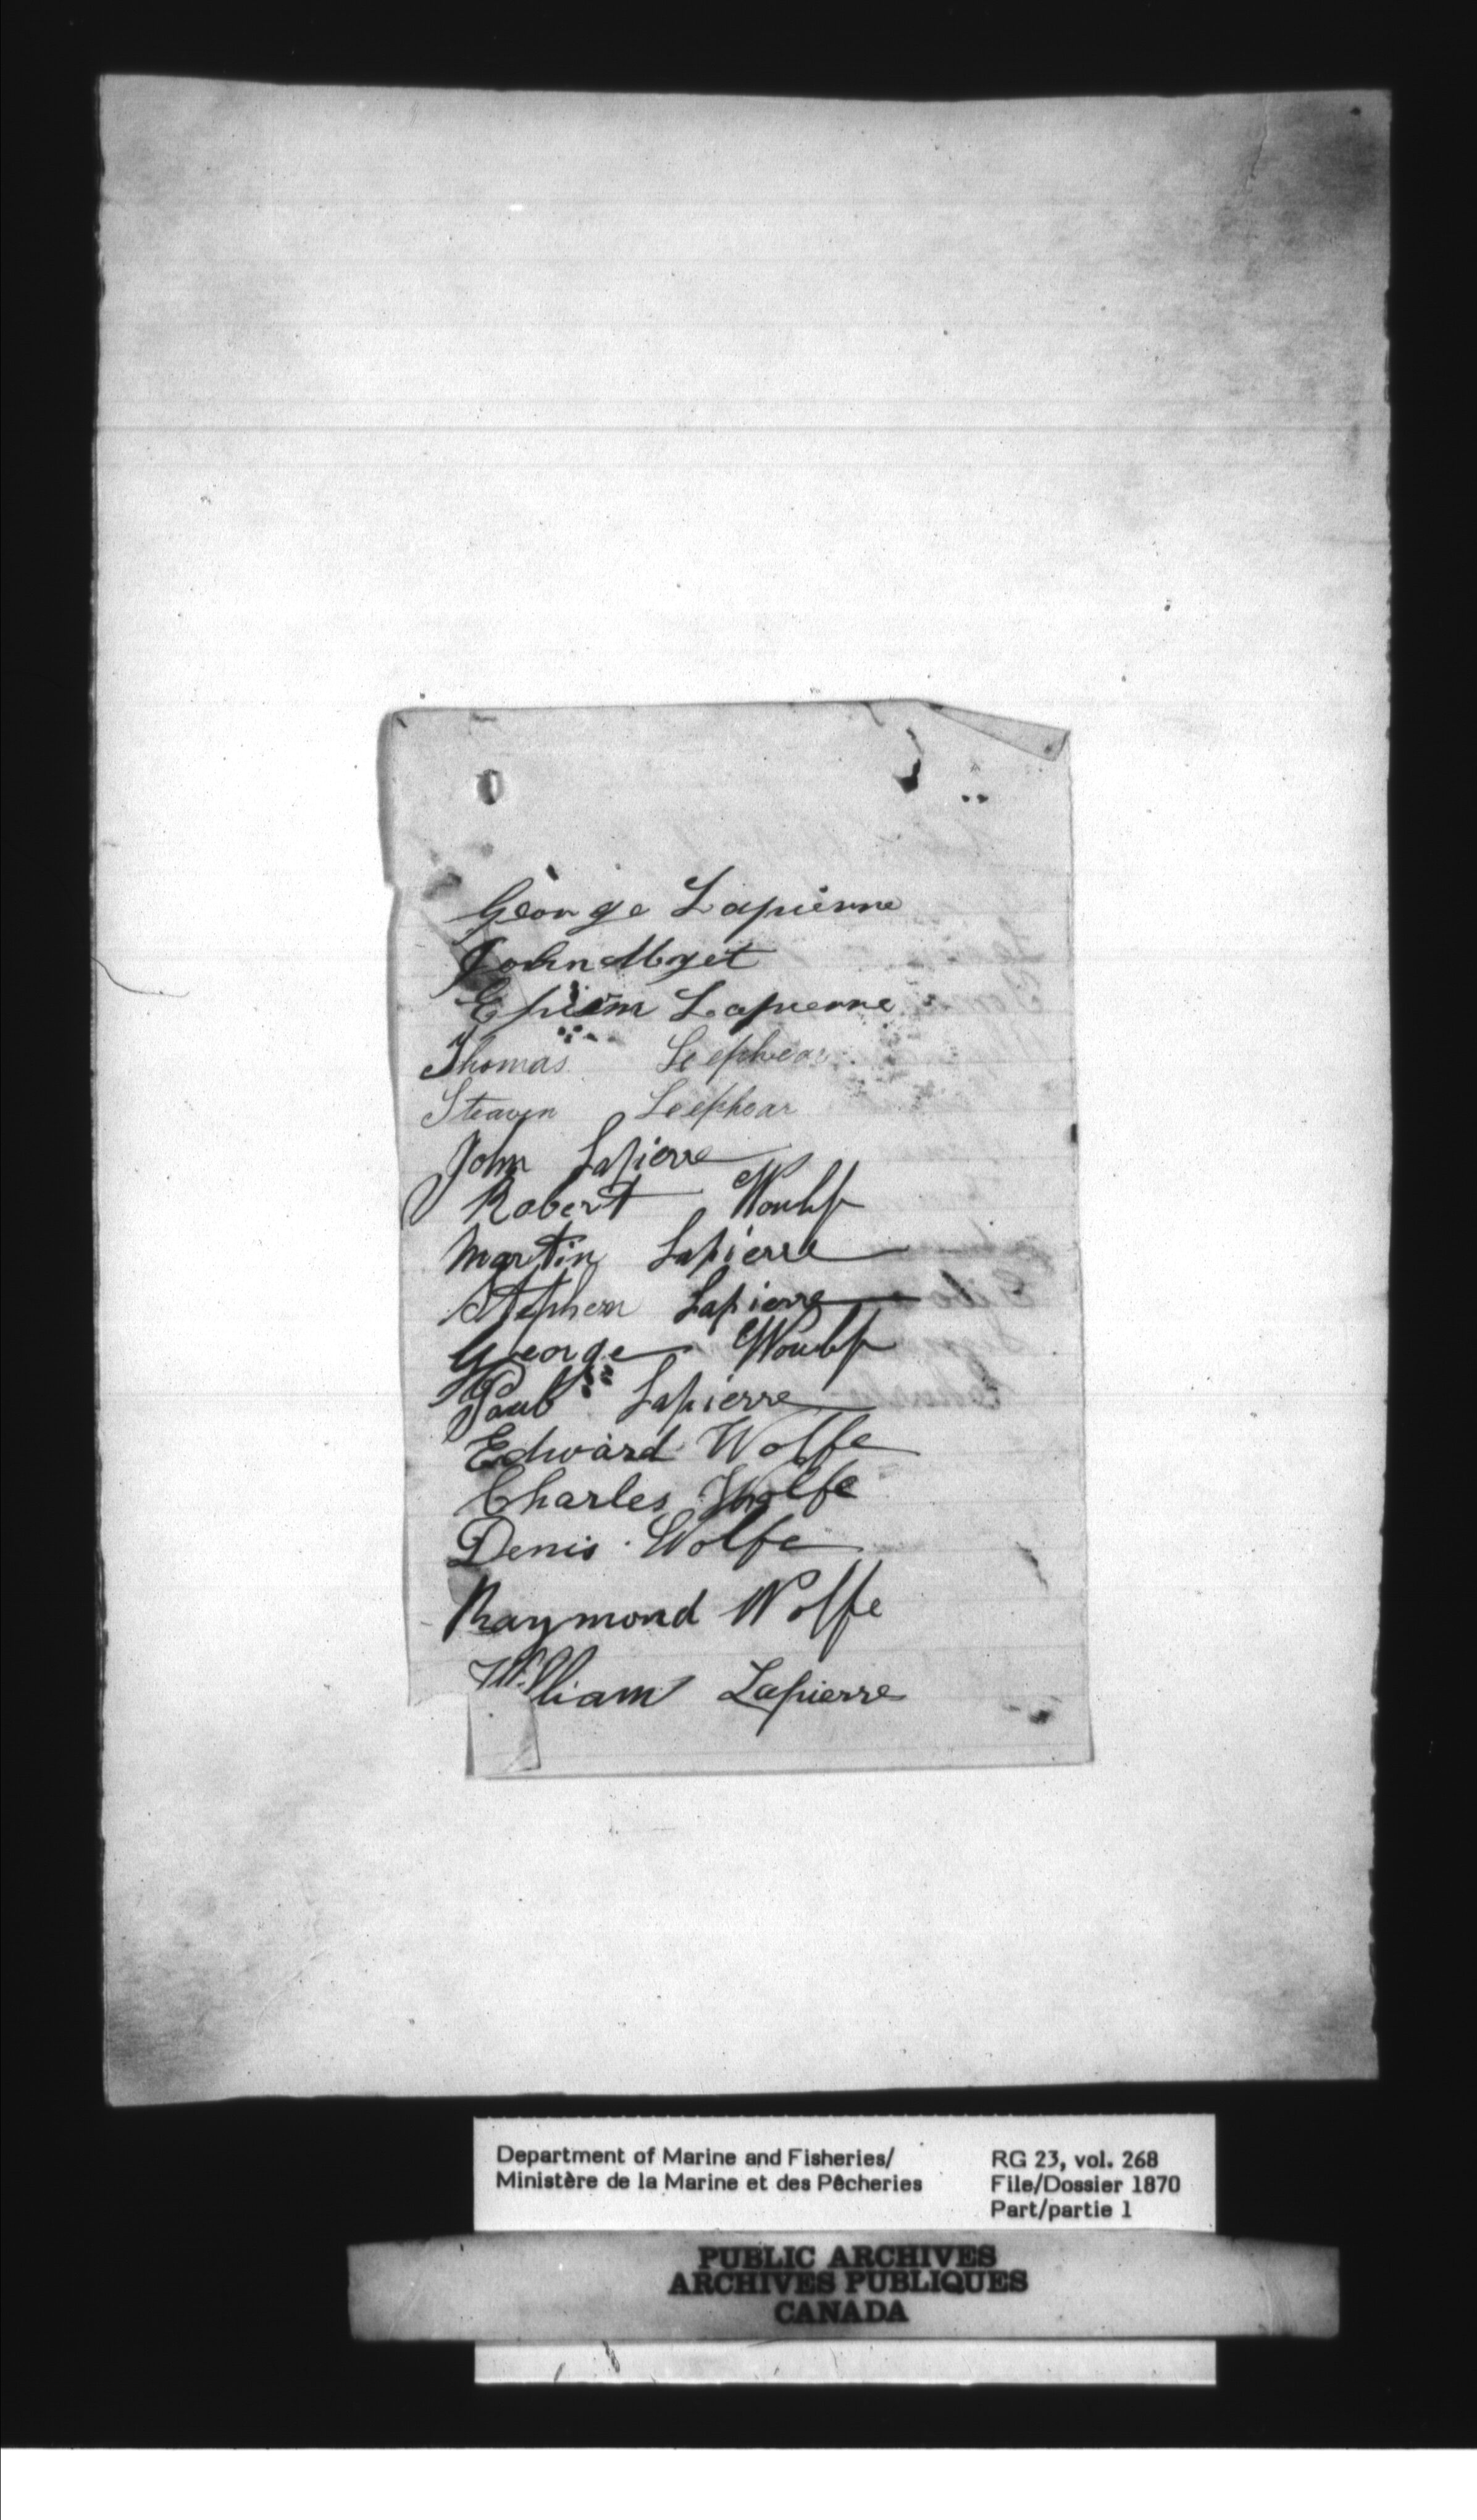 George Lapierre
John Myet
Epiem Lapierre
Thomas Leephear
Steaven Leephear
John Lapierre
Robert Woulf
Martin Lapierre
Stephen Lapierre
George Woulf
Paul Lapierre
Edward Wolfe
Charles Wolfe
Denis Wolfe
Raymond Wolfe
William Lapierre
Department of Marine and Fisheries/ RG 23, vol. 268
Ministère de la Marine et des Pêcheries File/Dossier 1870
Part/partie 1
PUBLIC ARCHIVES
ARCHIVES PUBLIQUES
CANADA